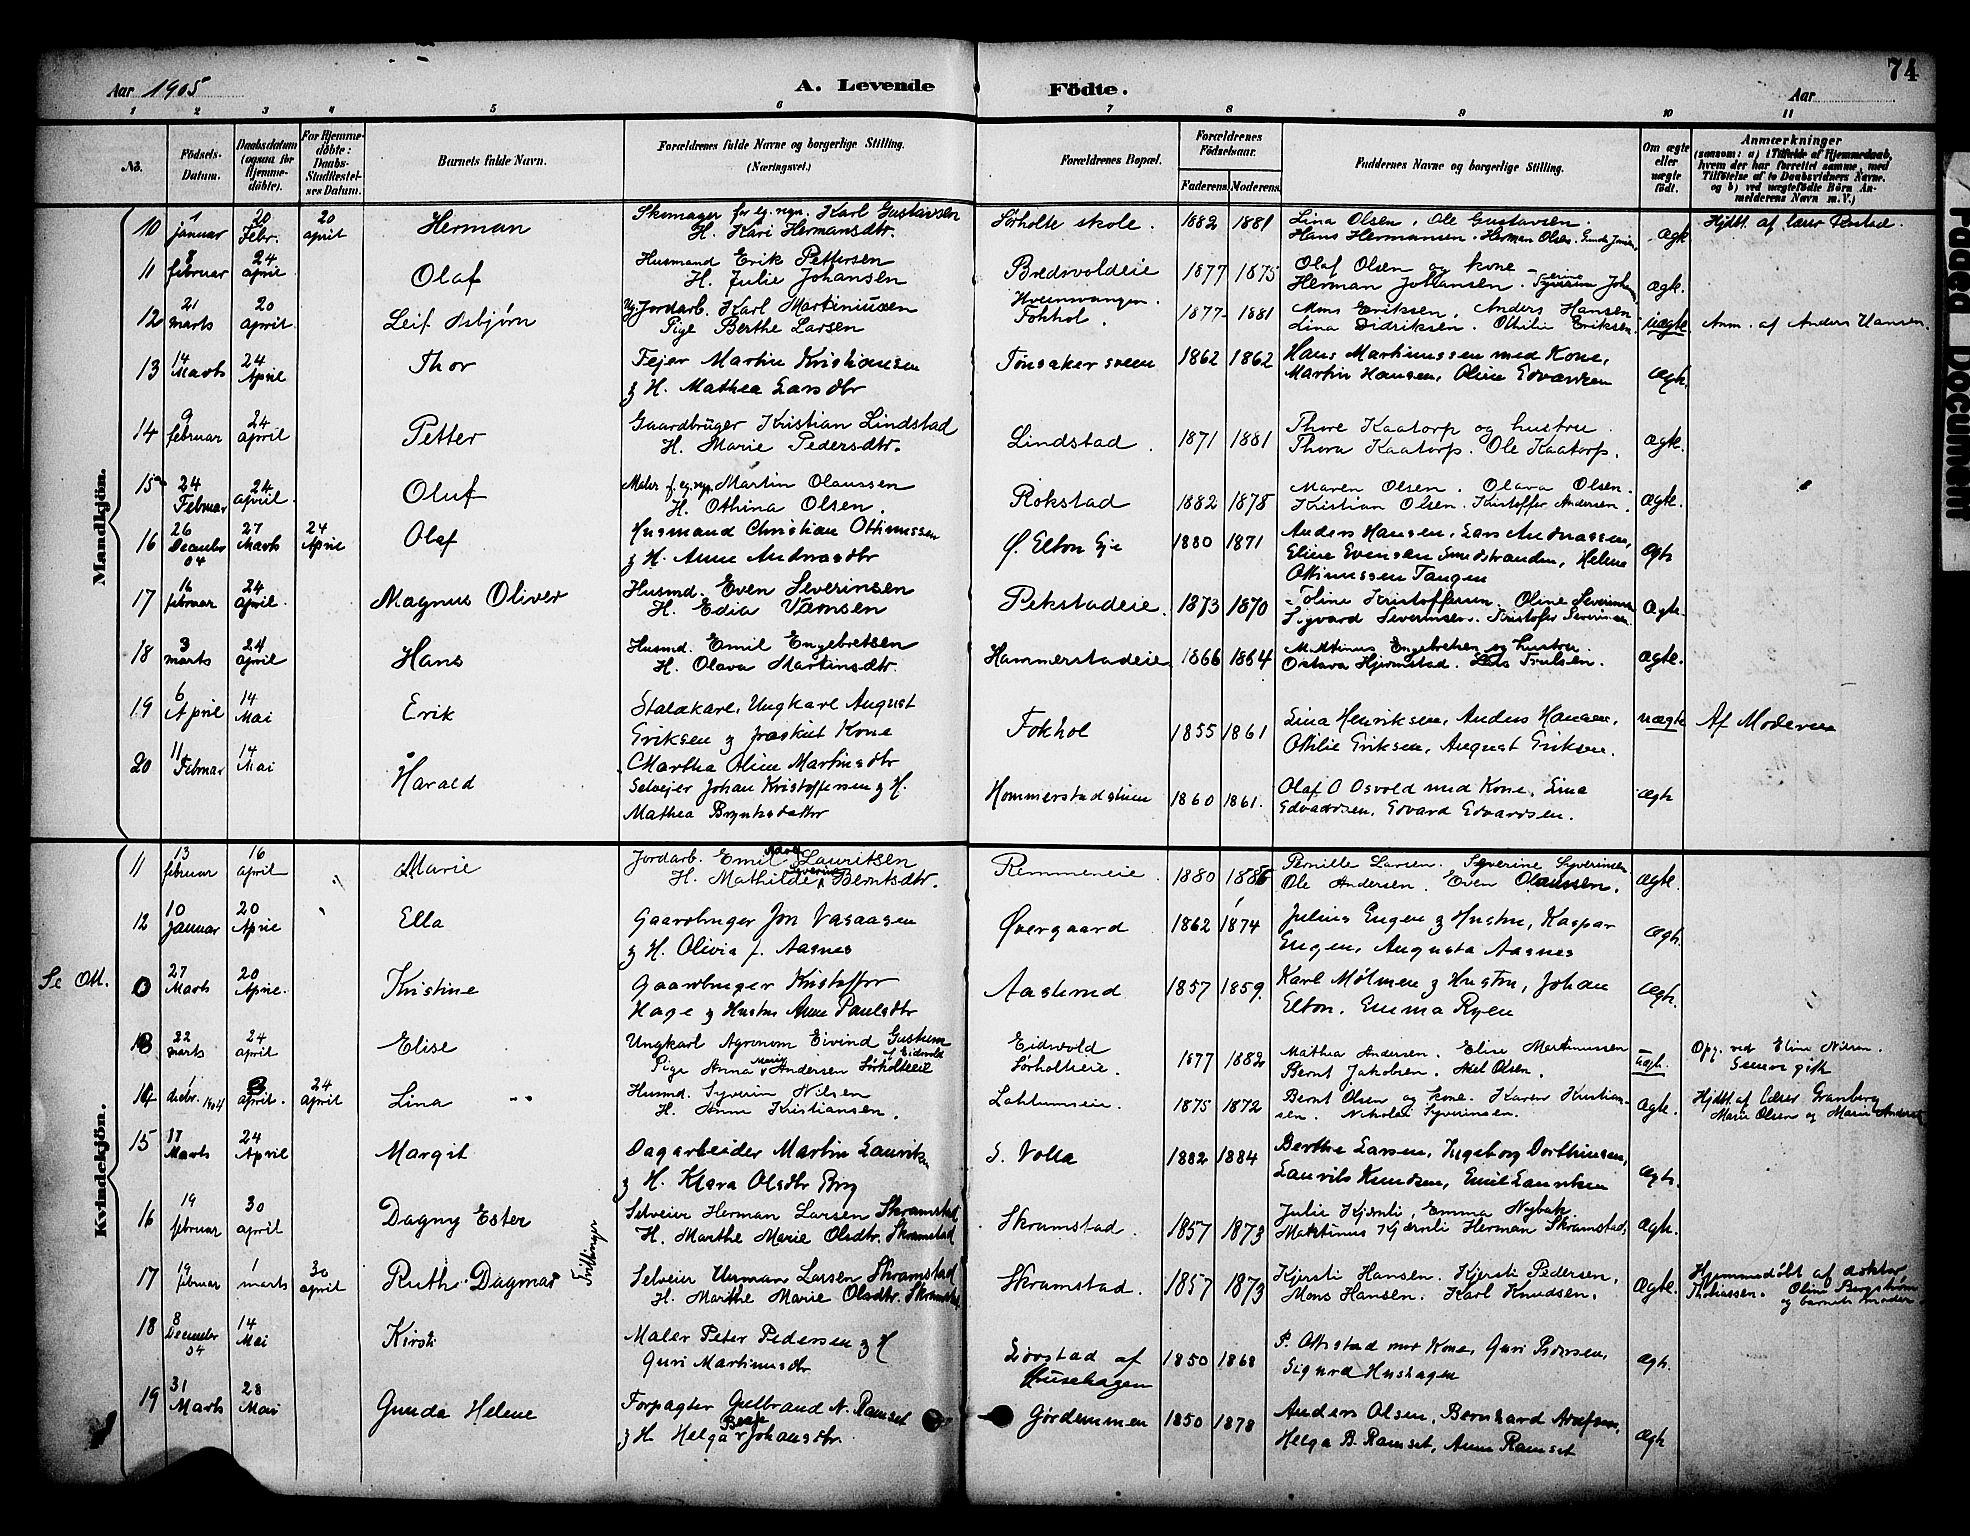 74
Aar 1905
A. Levende Födte.
Aar
1 2 3 4 5 6 7 8 9 10 11
No.
Födsels-Datum.
Daabsdatum (ogsaa for Hjemme-döbte).
For Hjemme-döbte: Daabs-Stadfæstel-ses Datum.
Barnets fulde Navn.
Forældrenes fulde Navne og borgerlige Stilling. (Næringsvei.)
Forældrenes Bopæl.
Forældrenes Födselsaar.
Faderens. Moderens.
Faddernes Navne og borgerlige Stilling.
Om ægte eller uægte födt.
Anmærkninger
(saasom: a) i Tilfælde af Hjemmedaab, hvem der har forrettet samme, med Tilföielse af to Daabsvidners Navne, og b) ved uægtefödte Börn Anmelderens Navn m. V.)
Mandkjön.
10 7 januar 20 Febr. 20 april Herman
Karl Gustavsen
H. Kari Hermansdtr.
Sørholte skole. 1882 1881
Lina Olsen. Ole Gustavsen.
Hans Hermansen. Herman Olsen.
Ægte
11 8 februar 24 april Olaf
Husmand Erik Pettersen
H. Julie Johansen
Bredvoldeie 1877 1875
Olaf Olsen og kone
Herman Johansen.
Ægte.
12 21 marts 20 april. Leif Asbjørn
Ug. Jordarb. Karl Martiniussen
Pige Berthe Larsen
Fokhol. 1877 1881
Mons Eriksen, Anders Hansen
Lina Didriksen. Othilie Eriksen.
uægte Anm. af Anders Hansen.
13 14 Marts 24 April Thor
Fejer Martin Kristiansen
& H. Mathea Larsdtr
Tønsaker sveen 1862 1862
Hans Martinussen med Kone,
Martin Hansen, Oline Edvardsen
Ægte.
14 9 februar 24 april Petter
Gaardbruger Kristian Lindstad
H. Marie Pedersdtr.
Lindstad. 1871 1881
Thore Kaatorp og hustru.
Thora Kaatorp. Ole Kaatorp.
Ægte.
15 24 Februar 24 april. Oluf
Maler f. eg. regn. Martin Olaussen
H. Othina Olsen.
Rokstad 1882 1878
Maren Olsen. Olava Olsen.
Kristian Olsen. Kristoffer Andersen.
Ægte.
16 26 December 04 27 Marts 24 April Olaf
Husmand Christian Ottinussen
& H. Anne Andreasdtr
Ø. Elton Eje 1880 1871
Anders Hansen, Lars Andreassen,
Eline Evensen Sundstranden, Helene
Ottinussen Tangen
Ægte
17 16 februar 24 april. Magnus Oliver
Husmd. Even Severinsen
H. Edia
Pekstadeie. 1873 1870
Toline Kristoffersen. Oline Severinsen
Sigvard Severinsen. Kristofer Severinsen.
Ægte.
18 3 marts 24 april Hans
Husmd. Emil Engebretsen
H. Olava Martinsdtr.
Hammerstadeie 1866 1864
Engebretsen og hustru.
Oktava Hjermstad. Lars Trulsen.
Ægte.
19 6 April 14 Mai Erik
Staldkarl, Ungkarl August
Eriksen & fraskilt Kone
Martha Oline Martinsdtr
Fokhol 1855 1861
Lina Henriksen, Anders Hansen,
Othilie Eriksen, August Eriksen.
uægte Af Moderen
20 11 Februar 14 Mai Harald
Selvejer Johan Kristoffersen & H.
Mathea
1860 1861.
Olaf O Osvold med Kone, Lina
Edvardsen, Edvard Edvardsen.
Ægte
Kvindekjön.
11 13 februar 16 april Marie
Jordarb. Emil Lauritsen
H. Mathilde Severine Berntsdtr.
Remmeneie. 1880 1886
Pernille Larsen. Syverine Syverinsen
Ole Andersen. Even Olaussen.
Ægte.
12 10 Januar 20 April Ella
Gaardbruger Jon Vasaasen
& H. Olivia f. Aasnes
Øvergaard 1862 1874
Julius Engen & Hustru, Kaspar
Engen, Augusta Aasnes
Ægte.
Se Ott. 0 27 Marts 20 April. Kristine
Gaardbruger Kristoffer
Hage & Hustru Anne Paulsdtr
Aaslund 1857 1859.
Karl Mølmen & Hustru, Johan
Elton, Emma Ryen
Ægte.
13 22 marts 24 april Elise
Ungkarl Agronom Eivind Gustum af Eidsvold
Pige Anna Marie Andersen Sørholteeie
Eidsvold
Sørholteeie. 1877 1882
Mathea Andersen. Elise Martinussen
Bernt Jakobsen. Axel Olsen.
uægte. Opg. ved Eline Nilsen.
14 decbr. 1904 april. 24 april Lina
Husmd. Syverin Nilsen
H. Anne Kristiansen.
1875 1872
Bernt Olsen og kone. Karen Kristian-
sen. Nikolai Syverinsen.
Ægte. Hjdbt. af Lærer Granberg
Marie Olsen og Marie Andersen
15 17 Marts 24 April Margit
Dagarbeider Martin Lauritsen
& H. Klara Olsdtr Berg
S. Volla 1882 1884
Berthe Larsen, Ingeborg Dorthinsen,
Laurits Knudsen, Emil Lauritsen
Ægte.
16 19 februar 30 april Dagny Ester
Selveier Herman Larsen Skramstad
H. Marthe Marie Olsdtr. Skramstad
Skramstad. 1857 1873
Julie Kjernli, Emma Nybak.
Martinus Kjernli Herman Skramstad,
Ægte.
Tvillinger
17 19 februar 1 marts 30 april Ruth Dagmar
Selveier Herman Larsen Skramstad
H. Marthe Marie Olsdtr. Skramstad.
Skramstad. 1857 1873
Kjersti Hansen. Kjersti Pedersen,
Mons Hansen. Karl Knudsen.
Ægte. Hjemmedøbt af doktor
Thobiassen. Oline Bergstrøm
og barnets moder.
18 8 December 04 14 Mai Kirsti
Maler Peter Pedersen & H
Guri Martinusdtr
Løvstad af
Husehagen 1850 1868
P. Ottestad med Kone, Guri Pedersen,
Sigurd Hushagen
Ægte.
19 31 Marts 28 Mai Gunda Helene
Forpagter Gulbrand N. Ramset
& H Helga Johansdtr.
Gørdemmen 1850 1878
Anders Olsen, Bernhard
Helga B. Ramset, Anne Ramset
Ægte
Faded Document